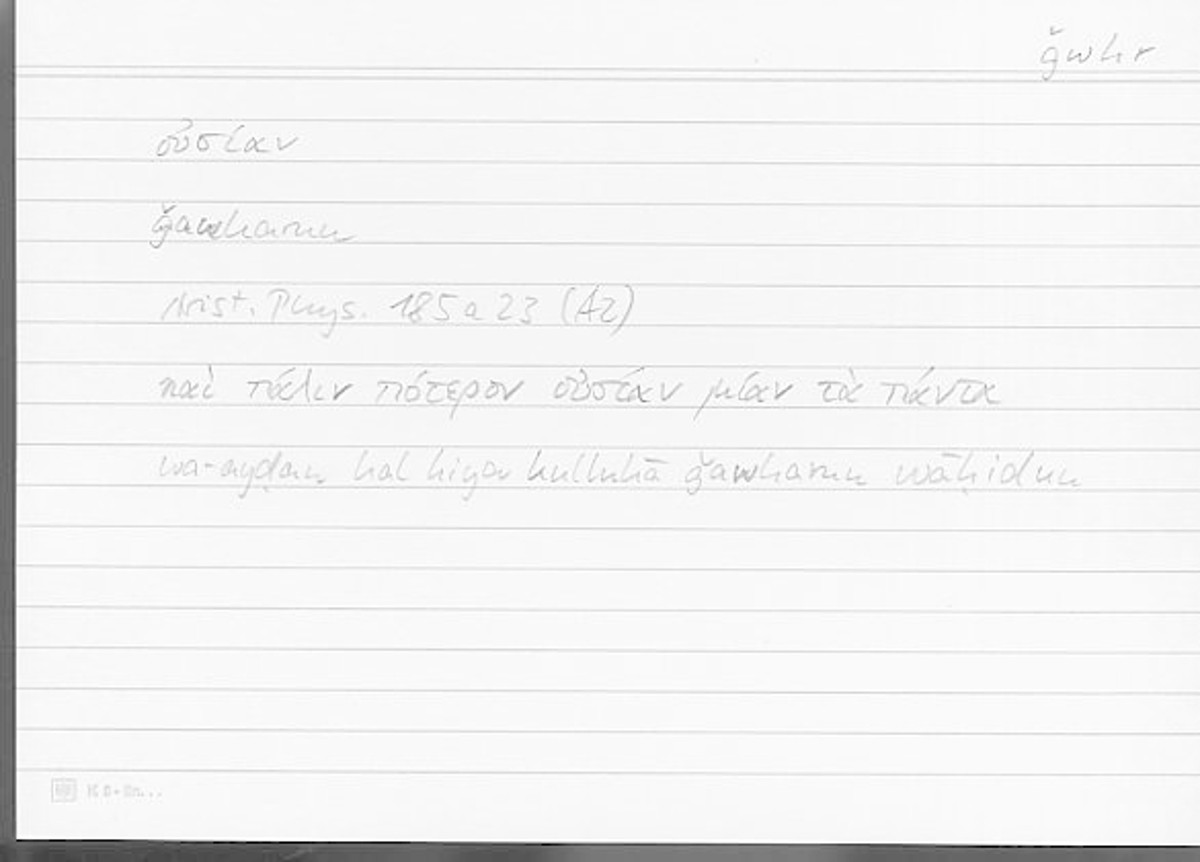 ǧwhr
οὐσίαν
ǧawharun
Arist. Phys. 185 a 23 (A2)
καὶ πάλιν πότερον οὐσίαν μίαν τὰ πάντα
wa-ayḍan hal hiya kulluhā ǧawharun wāḥidun